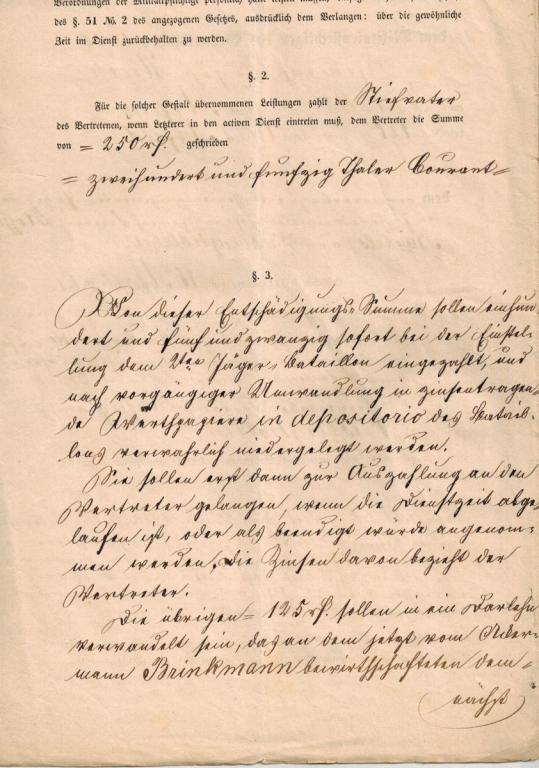 Verordnungen der Militairpflichtige persönlich hätte leisten müssen,
des §. 51 No. 2 des angezogenen Gesetzes, ausdrücklich dem Verlangen: über die gewöhnliche
Zeit im Dienst zurückbehalten zu werden.
§. 2.
Für die solcher Gestalt übernommenen Leistungen zahlt der Stiefvater
des Vertretenen, wenn Letzterer in den activen Dienst eintreten muß, dem Vertreter die Summe
von = 250 rℓ. geschrieben
= zweihundert und funfzig Thaler Courant =
§. 3.
Von dieser Entschädigungs-Summe sollen einhun-
dert und fünf und zwanzig sofort bei der Einstel-
lung dem 2ten Jäger-Bataillon eingezahlt, und
nach vorgängiger Umwandlung in zinsentragen-
de Werthpapiere in depositorio des Batail-
lons verwahrlich niedergelegt werden.
Sie sollen erst dann zur Auszahlung an den
Vertreter gelangen, wenn die Dienstzeit abge-
laufen ist, oder als beendigt würde angenom-
men werden, die Zinsen davon bezieht der
Vertreter.
Die übrigen = 125 rℓ. sollen in ein Darlehn
verwandelt sein, das an dem jetzt vom Acker-
mann Brinkmann bewirthschafteten dem-
nächst